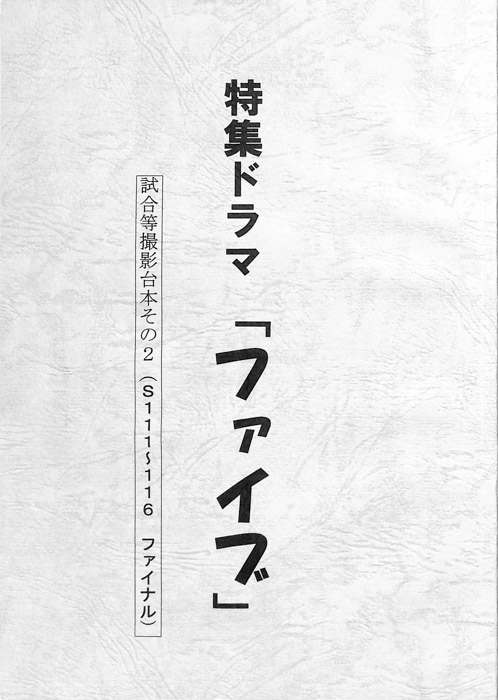 特集ドラマ「ファイブ」
試合等撮影台本その２（Ｓ１１１～１１６　ファイナル）